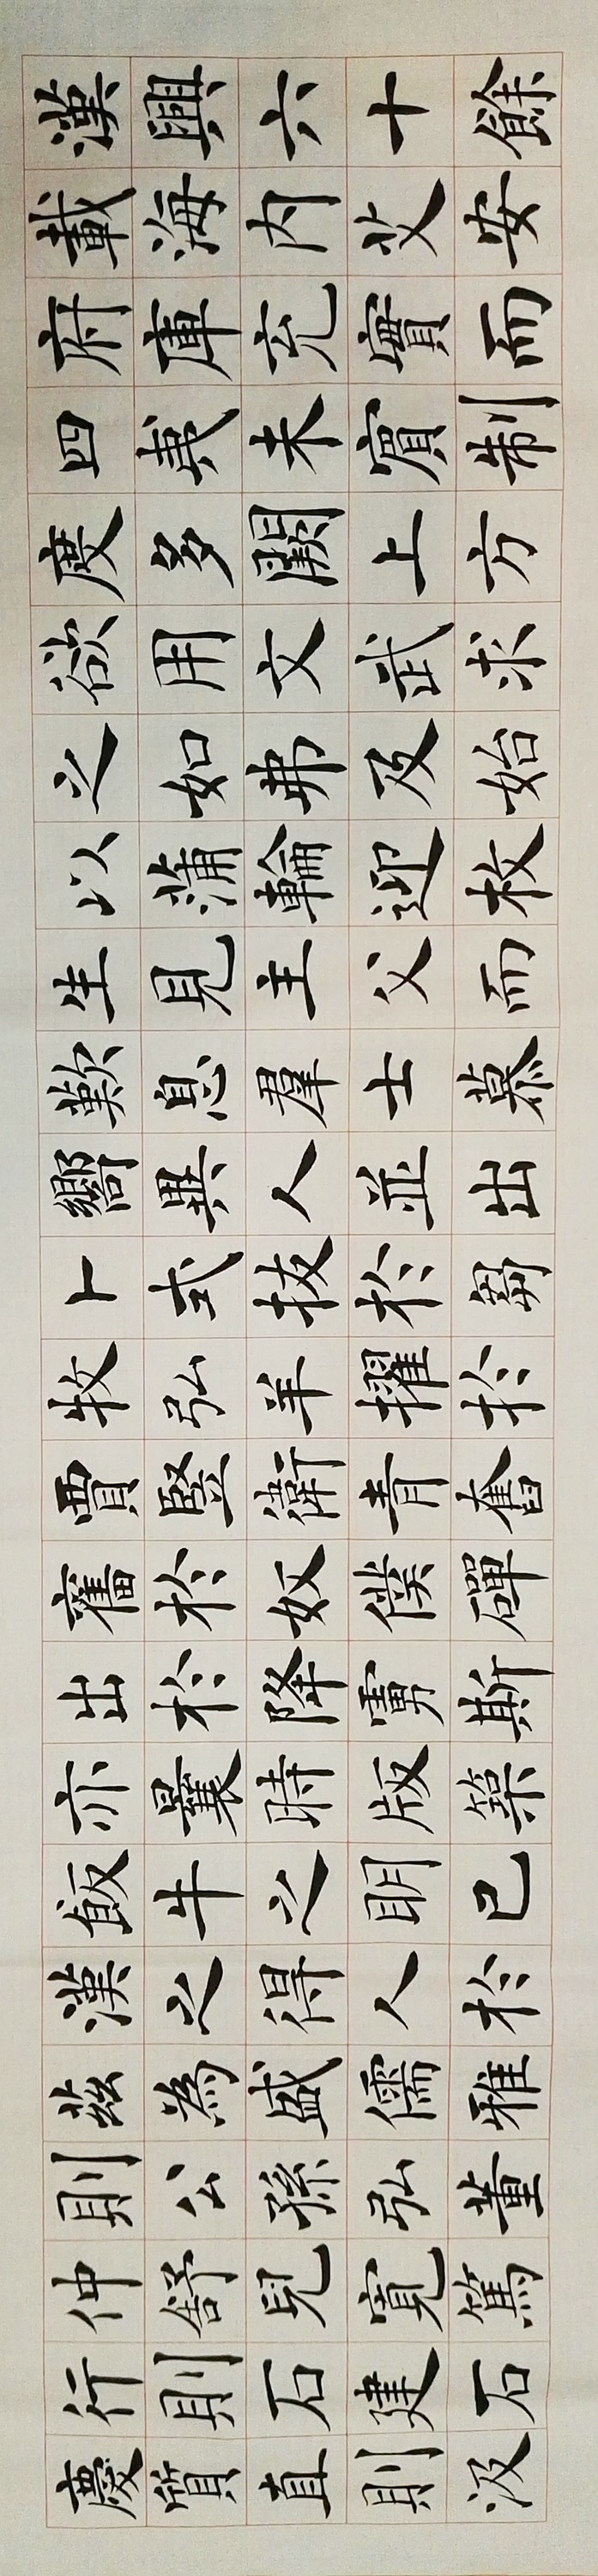 漢興六十餘
載海內艾安
府庫充實而
四夷未賓制
度多闕上方
欲用文武求
之如弗及始
以蒲輪迎枚
生見主父而
歎息羣士慕
嚮異人並出
卜式拔於芻
牧弘羊擢於
賈豎衛青奮
舊於奴僕磾
出於降虜斯
亦曩時版築
飯牛之明已
漢之得人於
茲為盛儒雅
則公孫弘董
仲舒兒寬篤
行則石建石
慶質直則汲